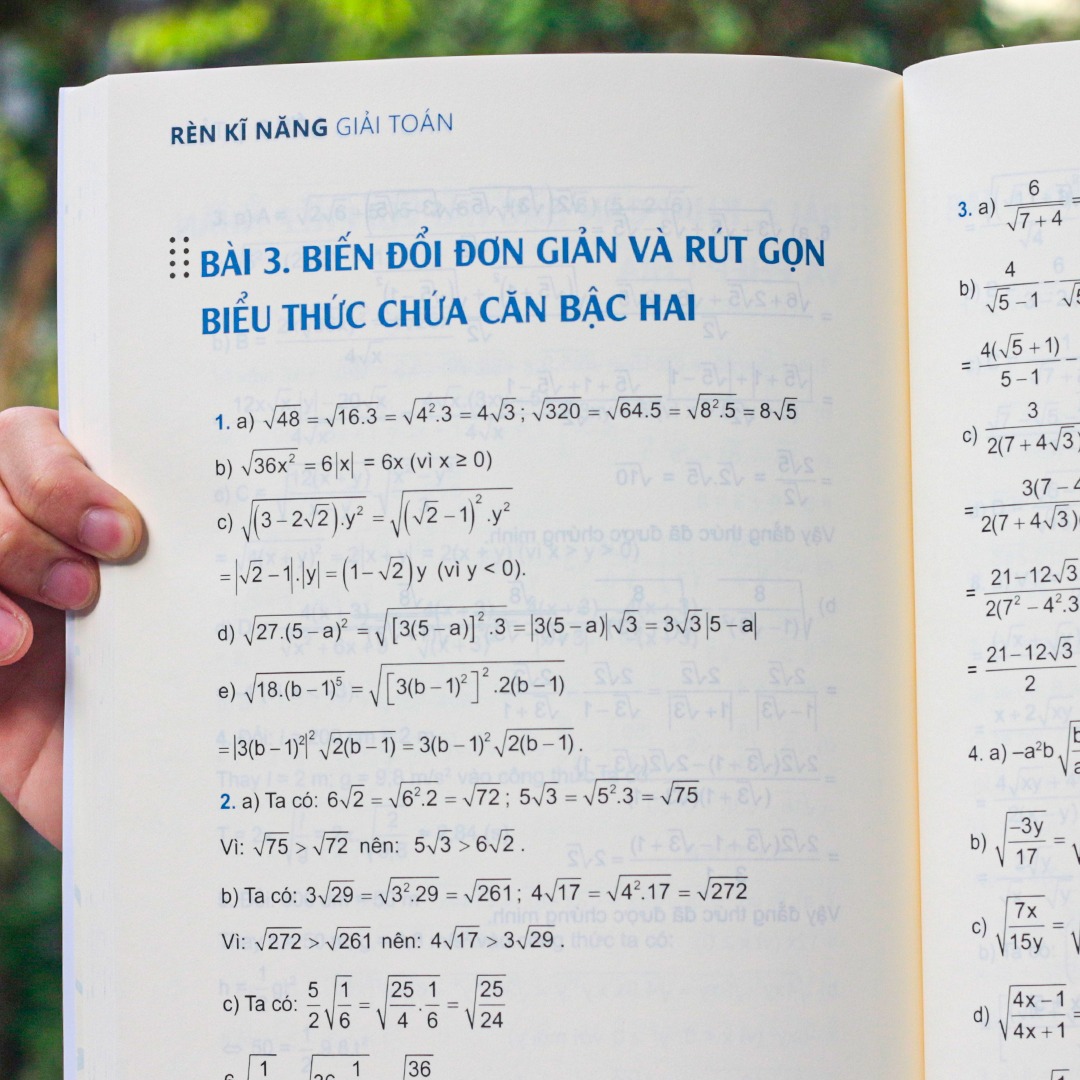 RÈN KĨ NĂNG GIẢI TOÁN
BÀI 3. BIẾN ĐỔI ĐƠN GIẢN VÀ RÚT GỌN
BIỂU THỨC CHỨA CĂN BẬC HAI
1. a) √48 = √16.3 = √4².3 = 4√3 ; √320 = √64.5 = √8².5 = 8√5
b) √36x² = 6|x| = 6x (vì x ≥ 0)
c) √(3 – 2√2).y² = √(√2 – 1)².y²
= |√2 – 1|.|y| = (1– √2)y (vì y < 0).
d) √27.(5 – a)² = √[3(5 – a)]².3 = |3(5 – a)|√3 = 3√3|5 – a|
e) √18.(b – 1)⁵ = √[3(b – 1)²]².2(b – 1)
= |3(b – 1)²|² √2(b – 1) = 3(b – 1)² √2(b – 1) .
2. a) Ta có: 6√2 = √6².2 = √72 ; 5√3 = √5².3 = √75
Vì: √75 > √72 nên: 5√3 > 6√2 .
b) Ta có: 3√29 = √3².29 = √261 ; 4√17 = √4².17 = √272
Vì: √272 > √261 nên: 4√17 > 3√29 .
c) Ta có: 5/2 √1/6 = √25/4 . 1/6 = √25/24
3. a) 6/√7 + 4 =
b) 4/√5 – 1 –
= 4(√5 + 1)/5 – 1 –
c) 3/2(7 + 4√3)
= 3(7 – 4/2(7 + 4√3)
= 21– 12√3/2(7² – 4².3
= 21– 12√3/2
4. a) –a²b
b) √–3y/17 =
c) √7x/15y =
d) √4x – 1/4x + 1 =